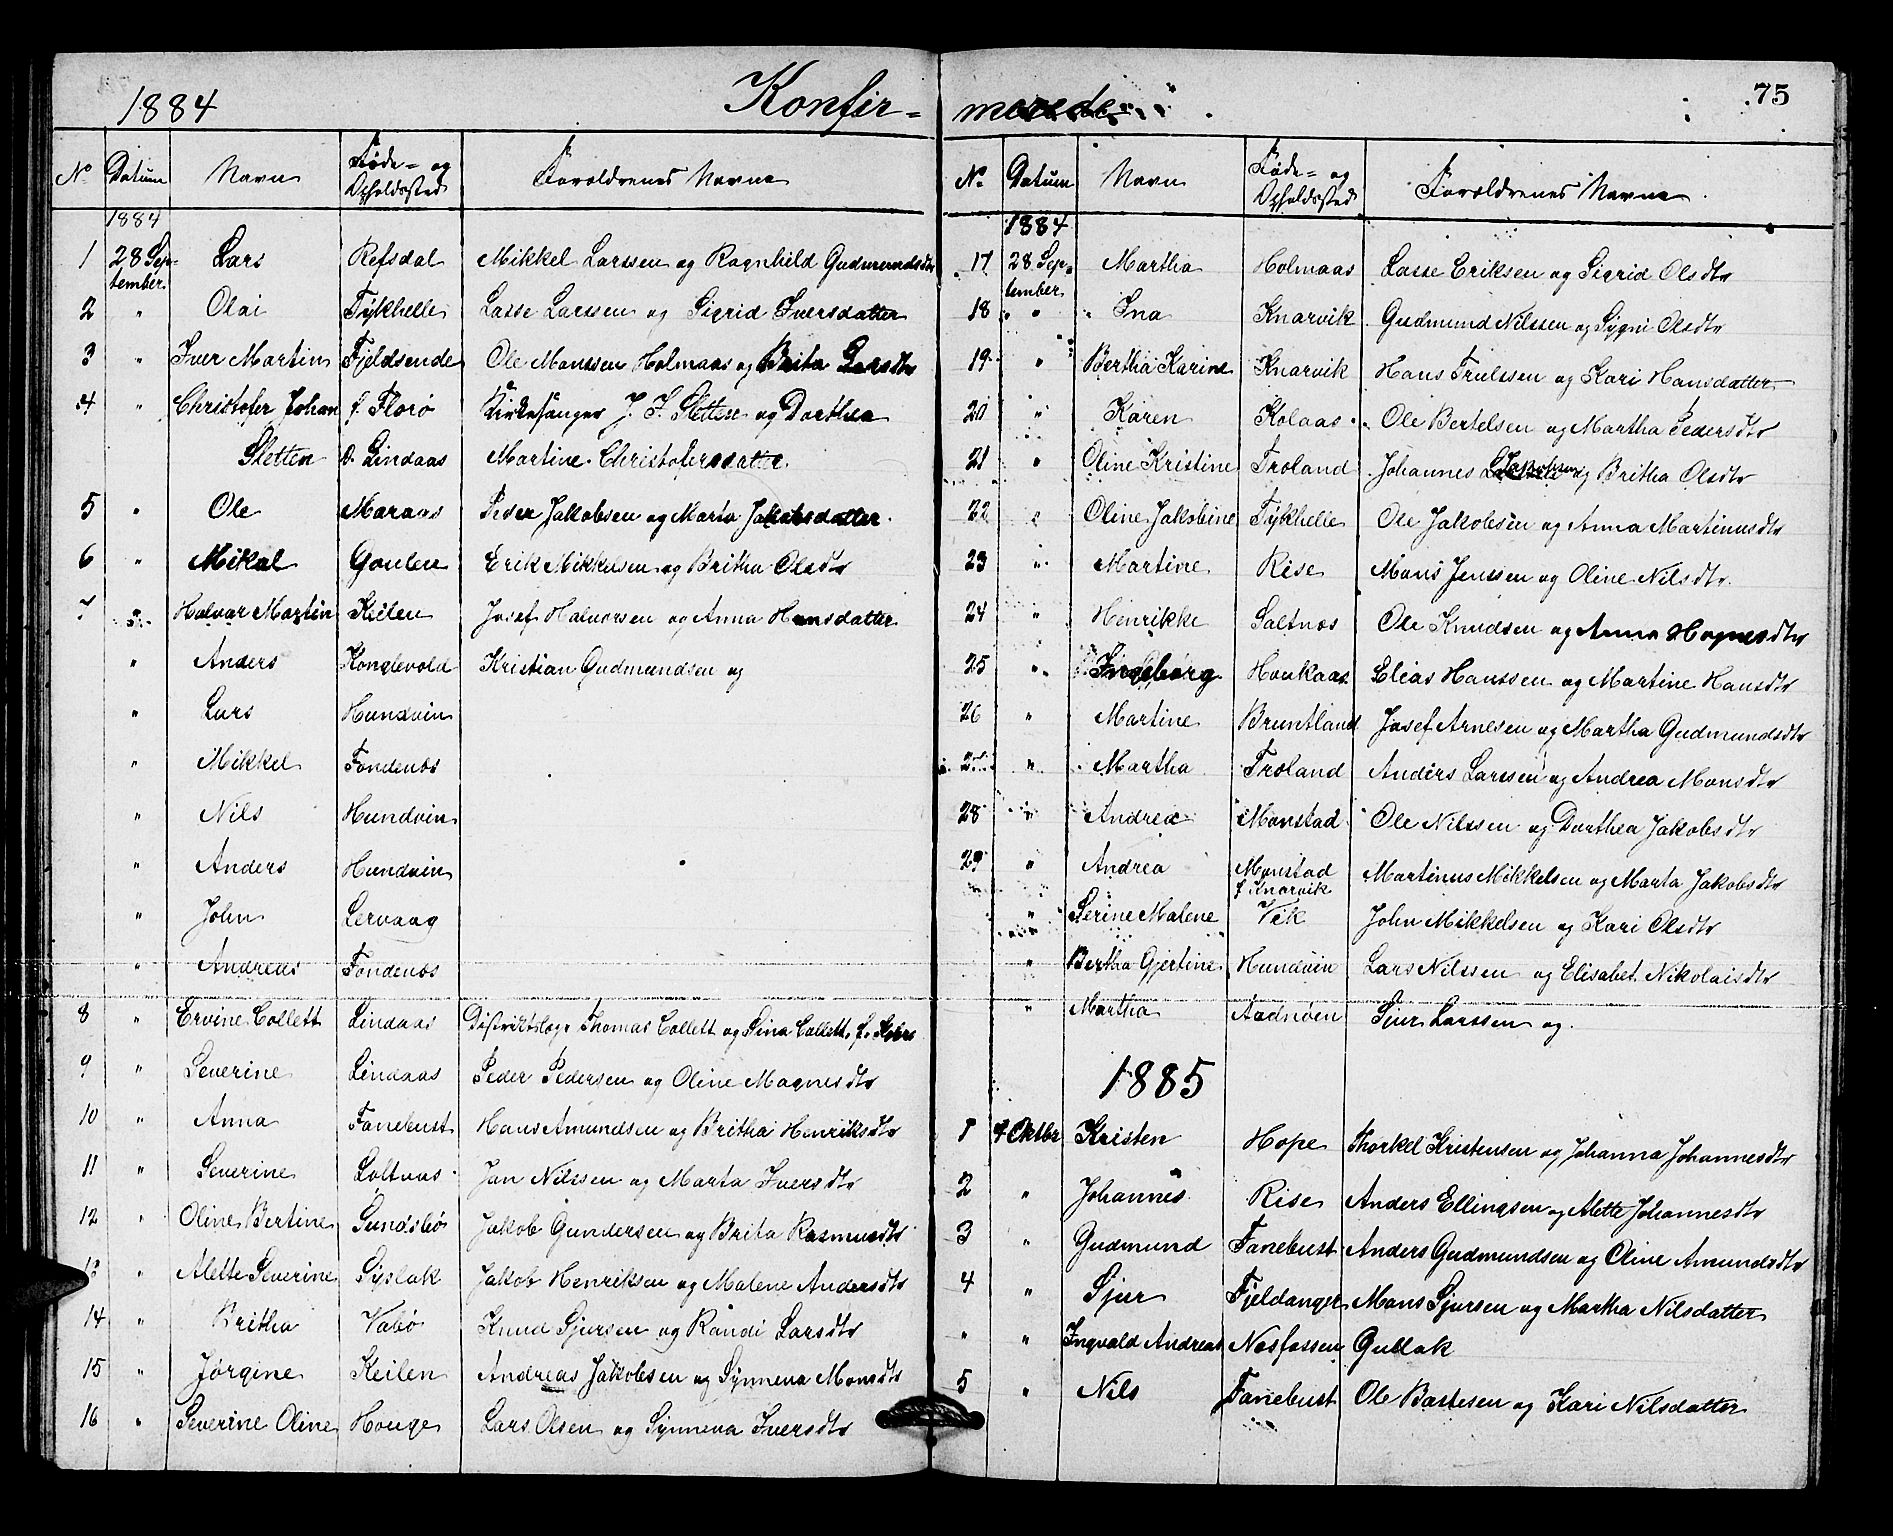 1884 Konfir=
No Datum Navn Føde= og Opholdssted Forældrenes Navne
1884
1 28 September Lars Refsdal Mikkel Larssen og Ragnhild Gudmundsdtr
2 " Olai Tykhelle Lasse Larssen og Sigrid Iversdatter
3 " Iver Martin Fjeldsende Ole Monssen Holmaas og Brita Larsdtr
4 " Christofer Johan f. Florø Kirkesanger J. F. Sletten og Dorthea
Sletten o. Lindaas Martine Christofersdatter.
5 " Ole Maraas Peder Jakobsen og Marta Jakobsdatter.
6 " Mikal Goulen Erik Mikkelsen og Britha Olsdtr
7 " Halvar Martin Keilen Josef Halvorsen og Anna Hansdatter
" Anders Konglevold Kristian Gudmundsen og
" Lars Hundvin
" Mikkel Fondenæs
" Nils Hundvin
" Anders Hundvin
" John Lervaag
" Andreas Fondenæs
8 " Ervine Collett Lindaas Distriktslæge Thomas Collett og Sina Collett, f.
9 " Severine Lindaas Peder Pedersen og Oline Magnesdtr
10 " Anna Fanebust Hans Amundsen og Britha Henriksdtr
11 " Severine Loltvaas Jan Nilssen og Marta Iversdtr
12 " Oline Bertine Sundsbø Jakob Gundersen og Brita Rasmusdtr
13 " Alette Severine Syslak Jakob Henriksen og Malene Andersdtr
14 " Britha Vabø Knud Sjursen og Randi Larsdtr
15 " Jørgine Keilen Andreas Jakobsen og Synneva Monsdtr
16 " Severine Oline Houge Lars Olsen og Synneva Iversdtr
merede 75
No Datum Navn Føde= og Opholdssted Forældrenes Navne
1884
17 28 September Martha Holmaas Lasse Eriksen og Sigrid Olsdtr
18 " Ina Knarvik Gudmund Nilssen og Sygni Olsdtr
19 " Bertha Karine Knarvik Hans Trulssen og Kari Hansdatter
20 " Karen Kolaas Ole Bertelsen og Martha Pedersdtr
21 " Oline Kristine Troland Johannes Jakobsen og Britha Olsdtr
22 " Oline Jakobine Tykhelle Ole Jakobsen og Anna Martinusdtr
23 " Martine Rise Mons Jenssen og Oline Nilsdtr
24 " Henrikke Saltnæs Ole Knudsen og Anna Magnesdtr
25 " Ingeborg Houkaas Elias Hanssen og Martine Hansdtr
26 " Martine Bruntland Josef Arnesen og Martha Gudmundsdtr
27 " Martha Troland Anders Larssen og Andrea Monsdtr
28 " Andrea Monstad Ole Nilssen og Dorthea Jakobsdtr
29 " Andrea Monstad f. Knarvik Martinus Mikkelsen og Marta Jakobsdtr
" Serine Malene Vik John Mikkelsen og Kari Olsdtr
" Bertha Gjertine Hundvin Lars Nilssen og Elisabet Nikolaisdtr
" Martha Aadnøen Sjur Larssen og
1885
1 4 Oktbr Kristen Hope Thorkel Kristensen og Johanna Johannesdtr
2 " Johannes Rise Anders Ellingsen og Alette Johannesdtr
3 " Gudmund Fanebust Anders Gudmundsen og Oline Amundsdtr
4 " Sjur Fjeldanger Mons Sjursen og Martha Nilsdatter
" " Ingvald Andreas Næsfossen Gullak
5 " Nils Fanebust Ole Bastesen og Kari Nilsdatter